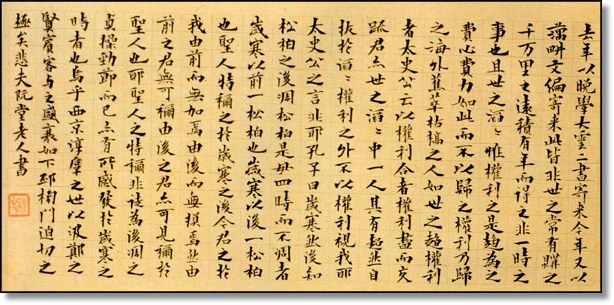 去年以晩學大雲二書寄來今年又以
藕畊文編寄來此皆非世之常有購之
千万里之遠積有年而得之非一時之
事也且世之滔滔惟權利之是趨爲之
費心費力如此而不以歸之權利乃歸
之海外蕉萃枯槁之人如世之趨權利
者太史公云以權利合者權利盡而交
踈君亦世之滔滔中一人其有超然自
拔於滔滔權利之外不以權利視我耶
太史公之言非耶孔子曰歲寒然後知
松栢之後凋松栢是毋四時而不凋者
歲寒以前一松栢也歲寒以後一松栢
也聖人特稱之於歲寒之後今君之於
我由前而無加焉由後而無損焉然由
前之君無可稱由後之君亦可見稱於
聖人也耶聖人之特稱非徒爲後凋之
貞操勁節而已亦有所感發於歲寒之
時者也烏乎西京淳厖之世以汲鄭之
賢賓客與之盛衰如下邳榜門迫切之
極矣悲夫阮堂老人書